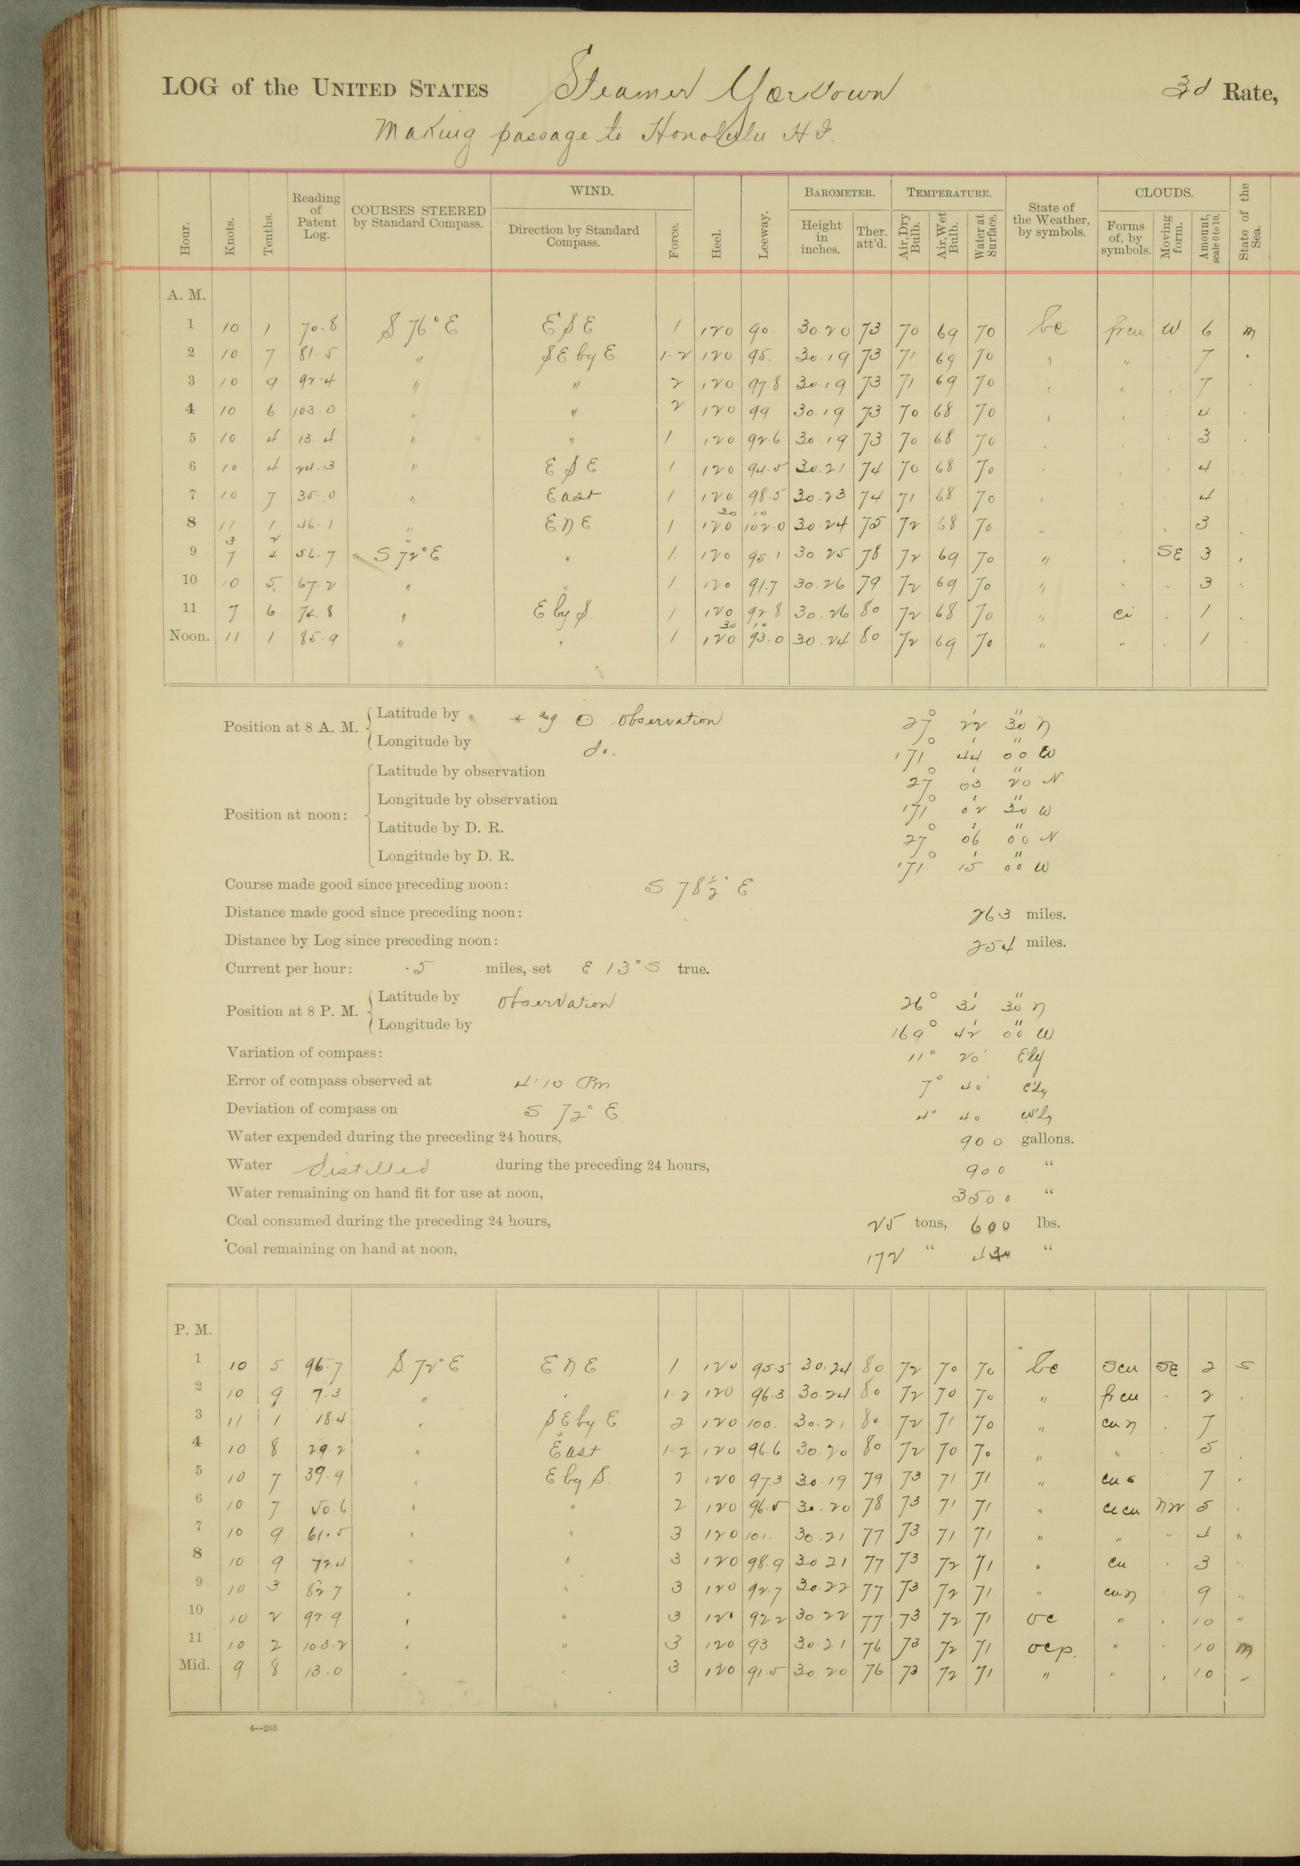 LOG of the UNITED STATES Steamer Yorktown 3d Rate,
Making passage to Honolulu H I.
Hour. Knots. Tenths. Reading of Patent Log. COURSES STEERED by Standard Compass. WIND. Direction by Standard Compass. Force. Heel. Leeway. BAROMETER. Height in inches. Ther. att'd. TEMPERATURE. Air, Dry Bulb. Air, Wet Bulb. Water at Surface. State of the Weather, by symbols. CLOUDS. Forms of, by symbols. Moving form. Amount, scale 0 to 10. State of the Sea.
A. M.
1 10 1 70.8 S 76° E ESE 1 120 90. 30.20 73 70 69 70 bc frcu W 6 m
2 10 7 81.5 " SE by E 1-2 120 95. 30.19 73 71 69 70 " " 7
3 10 9 92.4 " " 2 120 97.8 30.19 73 71 69 70 7
4 10 6 103.0 " " 2 120 99 30.19 73 70 68 70 4
5 10 4 13.4 " " 1 120 92.6 30.19 73 70 68 70 3
6 10 4 24.3 " ESE 1 120 94.5 30.21 74 70 68 70 4
7 10 7 35.0 " East 1 120 98.5 30.23 74 71 68 70 4
8 11 1 46.1 " ENE 1 120 30 102.0 10 30.24 75 72 68 70 3
9 3 7 2 4 56.7 " S 72° E " 1 120 95.1 30.25 78 72 69 70 " SE 3
10 10 5 67.2 " " 1 120 91.7 30.26 79 72 69 70 " 3
11 7 6 74.8 " E by S. 1 120 92.8 30.26 80 72 68 70 " ci 1
Noon. 11 1 85.9 " " 1 120 30 93.0 10 30.24 80 72 69 70 " " 1
Position at 8 A. M. Latitude by * and ⊙ observation 27° 22' 30" N
Longitude by do. 171° 44' 00" W
Position at noon: Latitude by observation 27° 03' 20" N
Longitude by observation 171° 02' 30" W
Latitude by D. R. 27° 06' 00" N
Longitude by D. R. 171° 15' 00" W
Course made good since preceding noon: S 78½° E
Distance made good since preceding noon: 263 miles.
Distance by Log since preceding noon: 254 miles.
Current per hour: .5 miles, set E 13° S true.
Position at 8 P. M. Latitude by observation 26° 31' 30" N
Longitude by 169° 42' 00" W
Variation of compass: 11° 20' E'ly
Error of compass observed at 4.10 Pm 7° 40' E'ly
Deviation of compass on S 72° E. 4° 40 W'ly
Water expended during the preceding 24 hours, 900 gallons.
Water distilled during the preceding 24 hours, 900 "
Water remaining on hand fit for use at noon, 3500 "
Coal consumed during the preceding 24 hours, 25 tons, 600 lbs.
Coal remaining on hand at noon, 172 " "
P. M.
1 10 5 96.7 S 72° E ENE 1 120 95.5 30.24 80 72 70 70 bc scu SE 2 S
2 10 9 7.3 " " 1-2 120 96.3 30.24 80 72 70 70 " frcu 2
3 11 1 18.4 " SE by E 2 120 100. 30.21 80 72 71 70 " cu n 7
4 10 8 29.2 " East 1-2 120 96.6 30.20 80 72 70 70 " " 5
5 10 7 39.9 " E by S. 2 120 97.3 30.19 79 73 71 71 " cu s 7
6 10 7 50.6 " " 2 120 96.5 30.20 78 73 71 71 " cicu NW 5
7 10 9 61.5 " " 3 120 101. 30.21 77 73 71 71 " " " 4 "
8 10 9 72.4 " " 3 120 98.9 30.21 77 73 72 71 " cu 3
9 10 3 82.7 " " 3 120 92.7 30.22 77 73 72 71 " cu n 9 "
10 10 2 92.9 " " 3 120 92.2 30.22 77 73 72 71 oc " 10 "
11 10 2 103.2 " " 3 120 93 30.21 76 73 72 71 ocp. " 10 m
Mid. 9 8 13.0 " " 3 120 91.5 30.20 76 73 72 71 " " 10 "
4—265